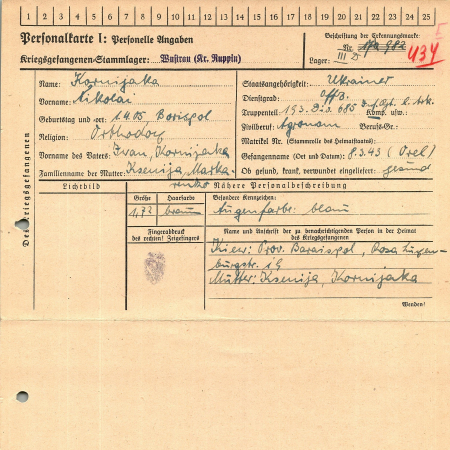 1 2 3 4 5 6 7 8 9 10 11 12 13 14 15 16 17 18 19 20 21 22 23 24 25
Personalkarte I: Personelle Angaben
Kriegsgefangenen-Stammlager: Wustrau (Kr. Ruppin)
Beschriftung der Erkennungsmarke
Nr. 982
Lager: III D
434
Des Kriegsgefangenen
Name: Kornijaka
Vorname: Nikolai
Geburtstag und -ort: 1405 Borispol
Religion: Orthodox
Vorname des Vaters: Ivan, Kornijaka
Familienname der Mutter: Ksenija, Marka-
renko
Staatsangehörigkeit: Ukrainer
Dienstgrad: Offz.
Truppenteil: 153. Div. 685 Komp. usw.:
Zivilberuf: Agronom Berufs-Gr.:
Matrikel Nr. (Stammrolle des Heimatstaates):
Gefangennahme (Ort und Datum): 8.3.43 (Orel)
Ob gesund, krank, verwundet eingeliefert: gesund
Lichtbild
Nähere Personalbeschreibung
Größe Haarfarbe Besondere Kennzeichen:
1,72 braun Augenfarbe: blau
Fingerabdruck
des rechten! Zeigefingers
Name und Anschrift der zu benachrichtigenden Person in der Heimat
des Kriegsgefangenen
Kiew: Prov. Baraispol, Rosa Luxen-
burgstr. 19
Mutter: Ksenija, Kornijaka
Wenden!